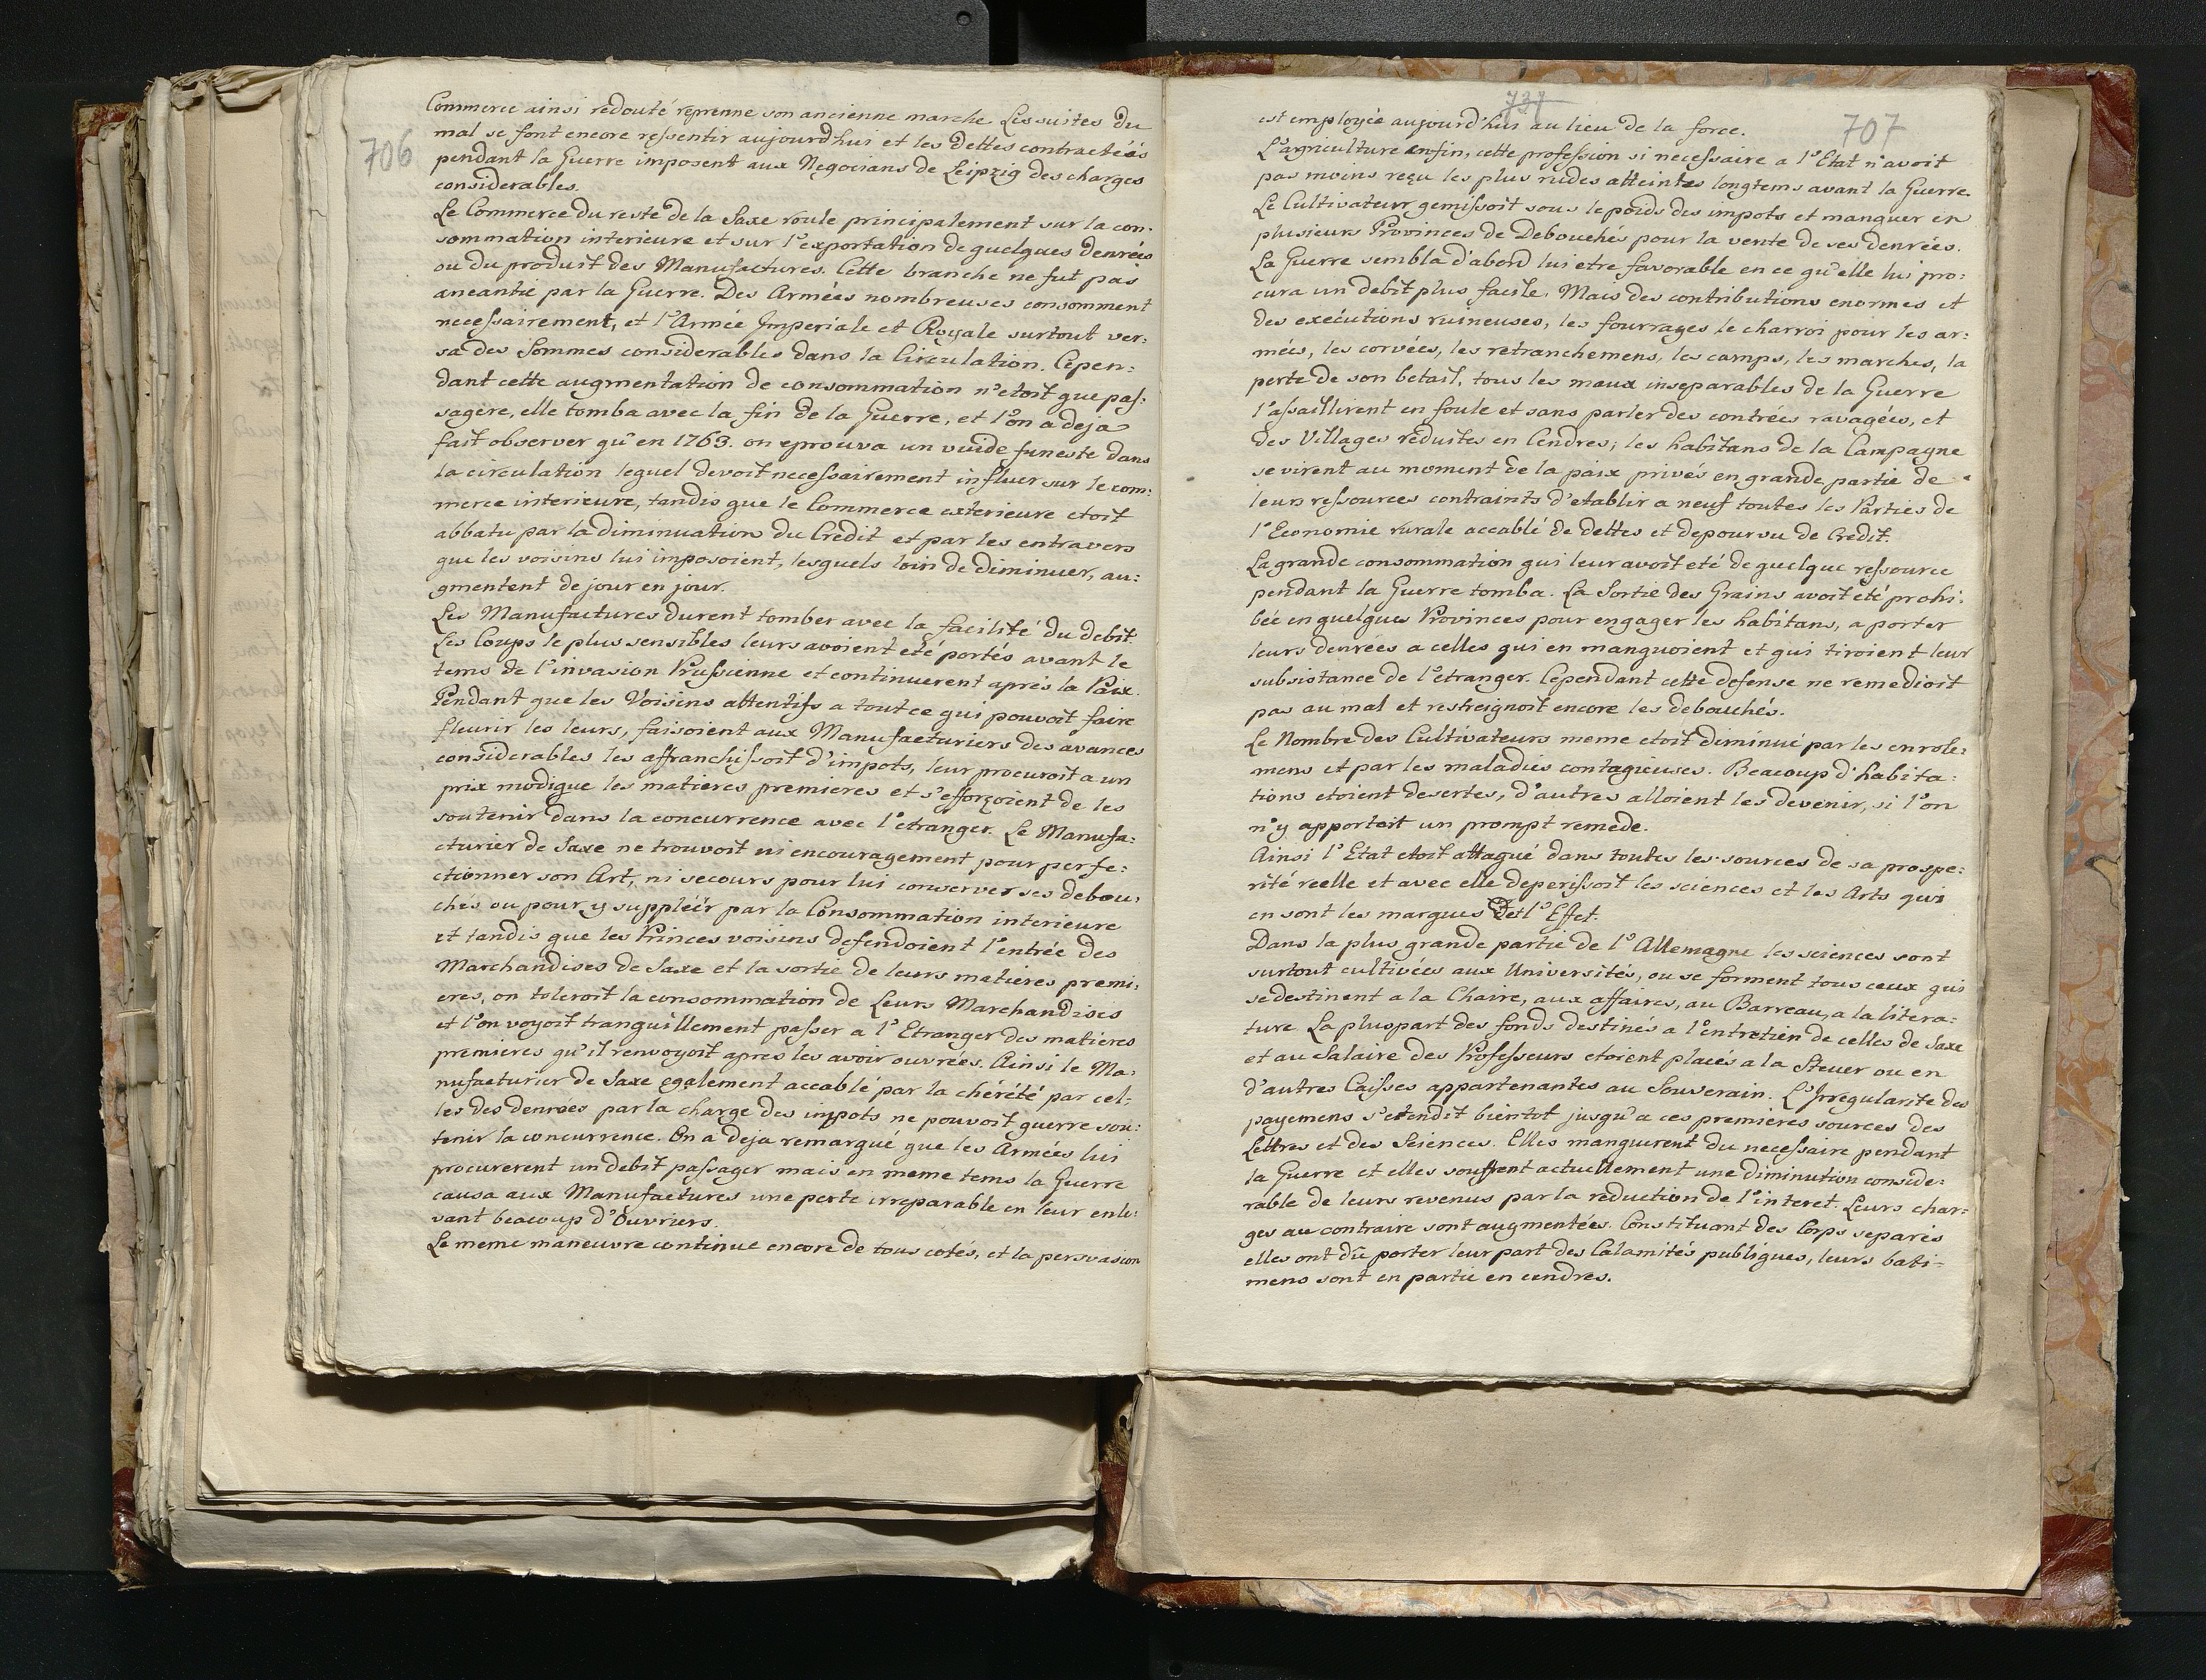 706
Commerce ainsi redouté reprenne son ancienne marche. Les suites du
mal se font encore ressentir aujourd'hui et les dettes contractées
pendant la Guerre imposent aux Negocians de Leipzig des charges
considerables.
Le Commerce du reste de la Saxe roule principalement sur la con:
sommation interieure et sur l'exportation de quelques denrées
ou du produit des Manufactures. Cette branche ne fut pas
aneantie par la Guerre. Des Armées nombreuses consomment
necessairement, et l'Armée Imperiale et Royale surtout ver:
sa des Sommes considerables dans la Circulation. Cepen:
dant cette augmentation de consommation n'etoit que pas:
sagere, elle tomba avec la fin de la Guerre, et l'on a deja
fait observer qu'en 1763. on eprouva un vuide funeste dans
la circulation lequel devoit necessairement influer sur le com:
merce interieure, tandis que le Commerce exterieure etoit
abbatu par la diminuation du Credit et par les entravers
que les voisins lui imposoient, lesquels loin de diminuer, au:
gmentent de jour en jour.
Les Manufactures durent tomber avec la facilité du debit.
Les Coups le plus sensibles leurs avoient eté portés avant le
tems de l'invasion Prussienne et continuerent aprés la Paix.
Pendant que les Voisins attentifs a tout ce qui pouvoit faire
fleurir les leurs, faisoient aux Manufacturiers des avances
considerables les affranchissoit d'impots, leur procuroit a un
prix modique les matieres premieres et s'efforçoient de les
soutenir dans la concurrence avec l'etranger. Le Manufa:
cturier de Saxe ne trouvoit ni encouragement pour perfe:
ctionner son Art, ni secours pour lui conserver ses debou:
chés ou pour y suppléér par la Consommation interieure
et tandis que les Princes voisins defendoient l'entrée des
Marchandises de Saxe et la sortie de leurs matieres premi:
eres, on toleroit la consommation de Leurs Marchandises
et l'on voyoit tranquillement passer a l'Etranger des matieres
premieres qu'il renvoyoit apres les avoir ouvrées. Ainsi le Ma:
nufacturier de Saxe egalement accablé par la chérété par cel:
les des denrées par la charge des impots ne pouvoit guerre sou:
tenir la concurrence. On a deja remarqué que les Armées lui
procurerent un debit passager mais en meme tems la Guerre
causa aux Manufactures une perte irreparable en leur enle:
vant beacoup d'Ouvriers.
Le meme maneuvre continue encore de tous cotés, et la persvasion
731
707
est employée aujourd'hui au lieu de la force.
L'agriculture enfin, cette profession si necessaire a l'Etat n'avoit
pas moins reçu les plus rudes atteintes longtems avant la Guerre.
Le Cultivateur gemissoit sous le poids des impots et manquer en
plusieurs Provinces de Debouchés pour la vente de ses denrées.
La Guerre sembla d'abord lui etre favorable en ce qu'elle lui pro:
cura un debit plus facile. Mais des contributions enormes et
des exécutions ruineuses, les fourrages le charroi pour les ar:
mées, les corvées, les retranchemens, les camps, les marches, la
perte de son betail, tous les maux inseparables de la Guerre
l'assaillirent en foule et sans parler des contrées ravagées, et
des Villages reduites en Cendres; les habitans de la Campagne
se virent au moment de la paix privés en grande partie de
leurs ressources contraints d'etablir a neuf toutes les Parties de
l'Economie rurale accablé de dettes et depourvu de Credit.
La grande consommation qui leur avoit eté de quelque ressource
pendant la Guerre tomba. La Sortie des Grains avoit été prohi:
bée en quelques Provinces pour engager les habitans, a porter
leurs denrées a celles qui en manquoient et qui tiroient leur
subsistance de l'etranger. Cependant cette defense ne remedioit
pas au mal et restreignoit encore les debouchés.
Le Nombre des Cultivateurs meme etoit diminué par les enrole:
mens et par les maladies contagieuses. Beacoup d'habita:
tions etoient desertes, d'autres alloient les devenir, si l'on
n'y apportoit un prompt remede.
Ainsi l'Etat etoit attaqué dans toutes les sources de sa prospe:
rité reelle et avec elle deperissoit les sciences et les Arts qui
en sont les marques et l'Effet.
Dans la plus grande partie de l'Allemagne les sciences sont
surtout cultivées aux Universités, ou se forment tous ceux qui
se destinent a la Chaire, aux affaires, au Barreau, a la litera:
ture. La pluspart des fonds destinés a l'entretien de celles de Saxe
et au Salaire des Professeurs etoient placés a la Steuer ou en
d'autres Caisses appartenantes au Souverain. L'Irregularite des
payemens s'etendit bientot jusqu'a ces premieres sources des
Lettres et des Sciences. Elles manquerent du necessaire pendant
la Guerre et elles souffrent actuellement une diminution conside:
rable de leurs revenus par la reduction de l'interet. Leurs char:
ges au contraire sont augmentées. Constituant des Corps separés
elles ont dû porter leur part des Calamités publiques, leurs bati-
mens sont en partie en cendres.